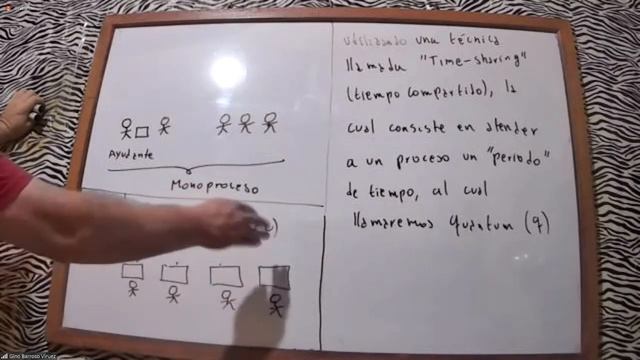 Ayudante
Monoproceso
utilizando una técnica
llamada "Time-sharing"
(tiempo compartido), la
cual consiste en atender
a un proceso un "periodo"
de tiempo, al cual
llamaremos quantum (q)
Gino Barroso Viruez